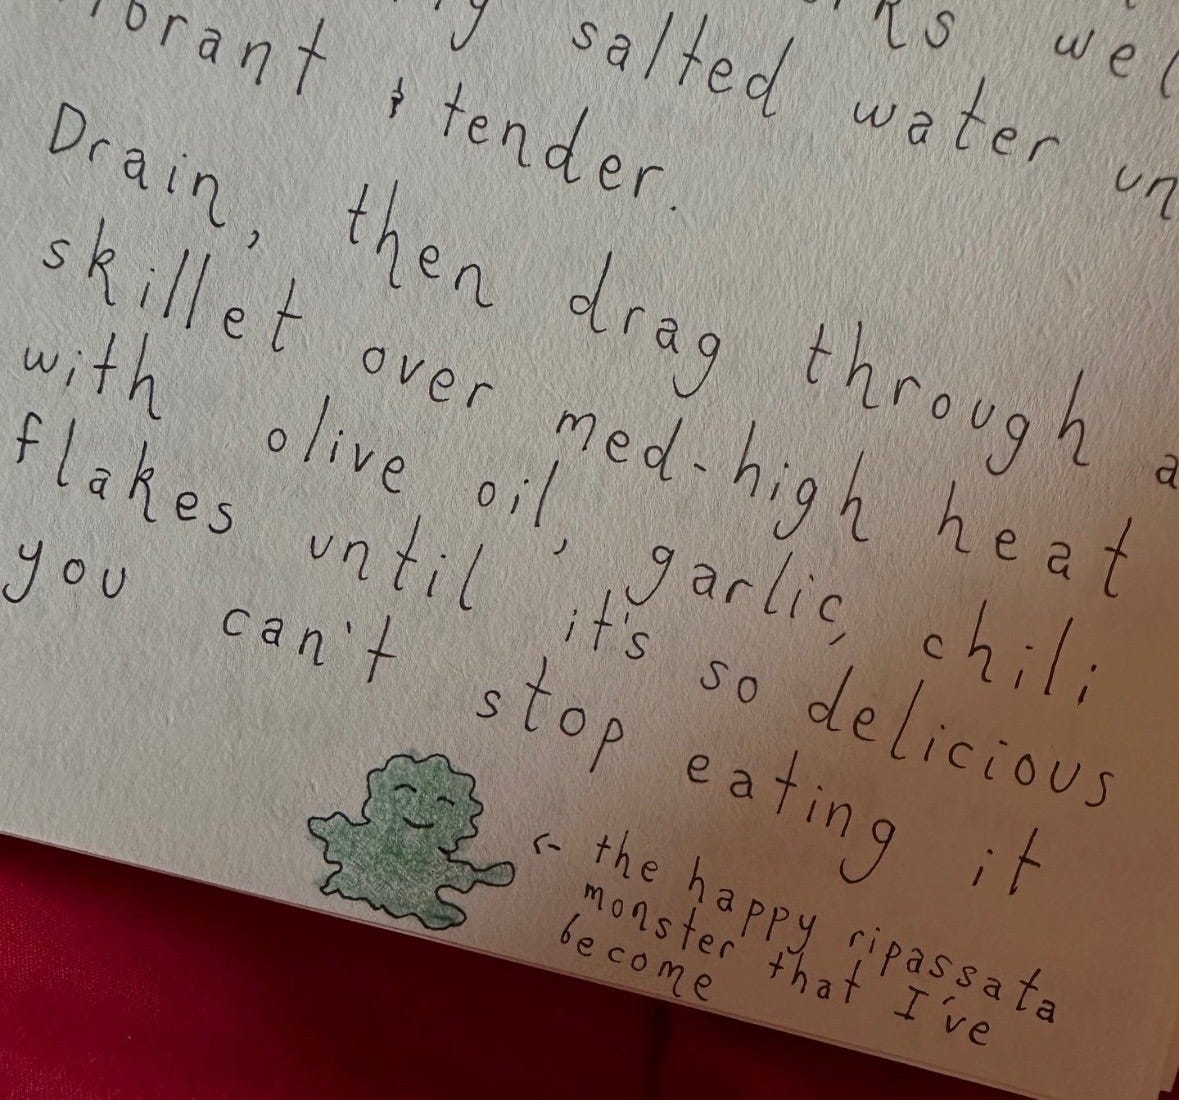 salted water
& tender.
Drain, then drag through a
skillet over med-high heat
with olive oil, garlic, chili
flakes until it's so delicious
you can't stop eating it
<- the happy ripassata
monster that I've
become